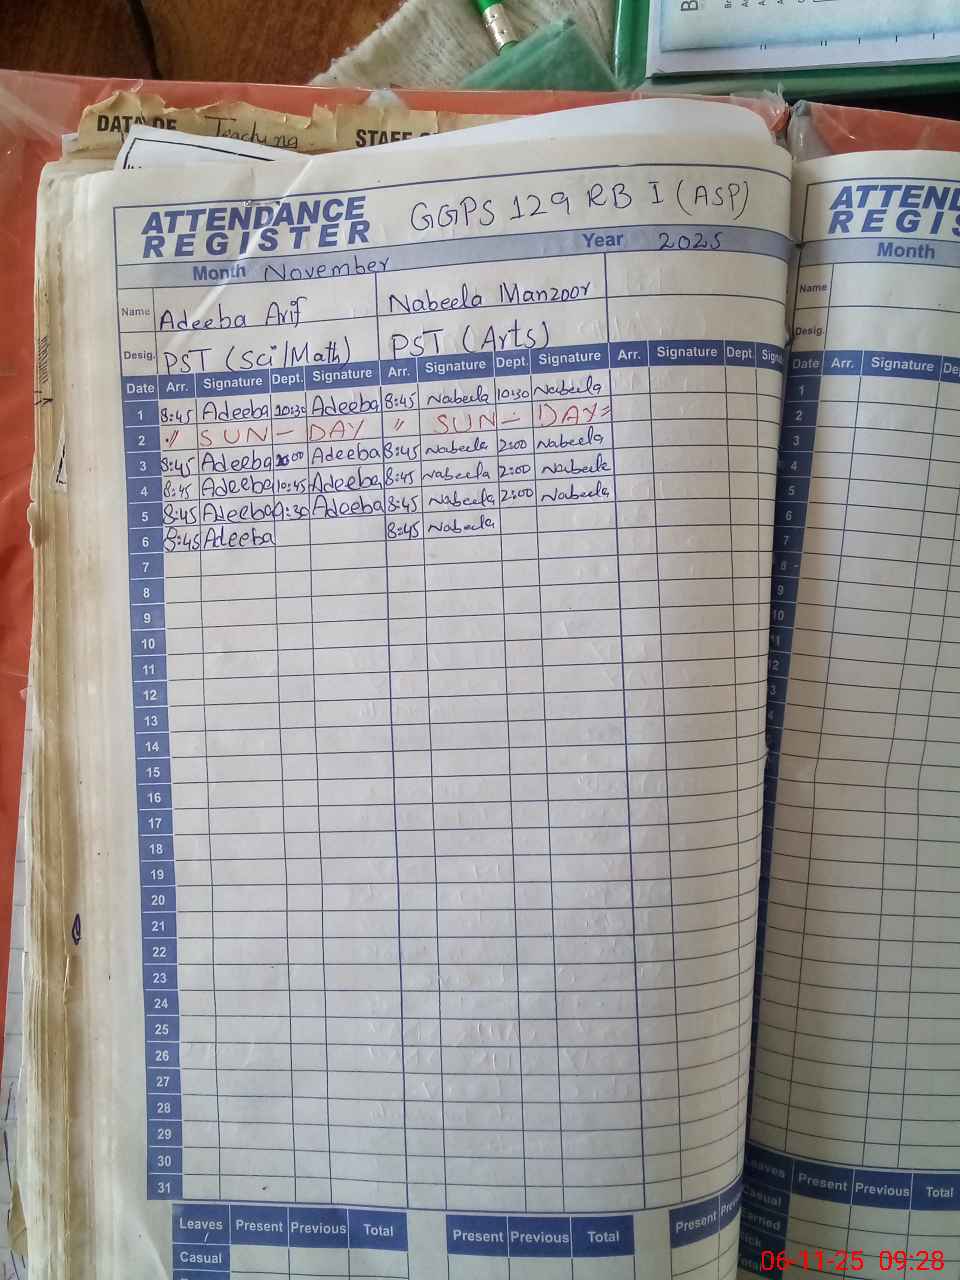 DATA OF Teaching STAFF
ATTENDANCE REGISTER GGPS 129 RB I (ASP)
Month November Year 2025
Name Adeeba Arif Nabeela Manzoor
Desig. PST (Sci/Math) PST (Arts)
Date Arr. Signature Dept. Signature Arr. Signature Dept. Signature Arr. Signature Dept.
1 8:45 Adeeba 10:30 Adeeba 8:45 Nabeela 10:30 Nabeela
2 " SUN - DAY " SUN - DAY
3 8:45 Adeeba Adeeba 8:45 Nabeela 2:00 Nabeela
4 8:45 Adeeba 10:45 Adeeba 8:45 Nabeela 2:00 Nabeela
5 8:45 Adeeba 9:30 Adeeba 8:45 Nabeela 2:00 Nabeela
6 8:45 Adeeba 8:45 Nabeela
7
8
9
10
11
12
13
14
15
16
17
18
19
20
21
22
23
24
25
26
27
28
29
30
31
Leaves Present Previous Total Present Previous Total Present
Casual
ATTEND
REGIS
Month
Name
Desig.
Date Arr. Signature
1
2
3
4
5
6
7
8
9
10
Leaves Present Previous Total
Casual
Earned
06-11-25 09:28